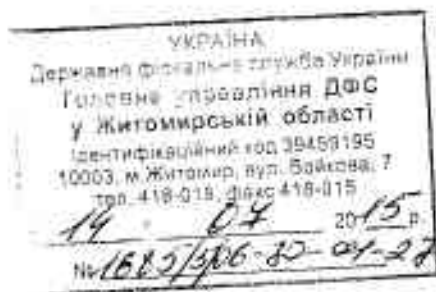 УКРАЇНА
Державна фіскальна служба України
Головне управління ДФС
у Житомирській області
Ідентифікаційний код 39459195
10003, м. Житомир, вул. Бойкова, 7
тел. 418-018, факс 418-015
14 07 2015 р.
№